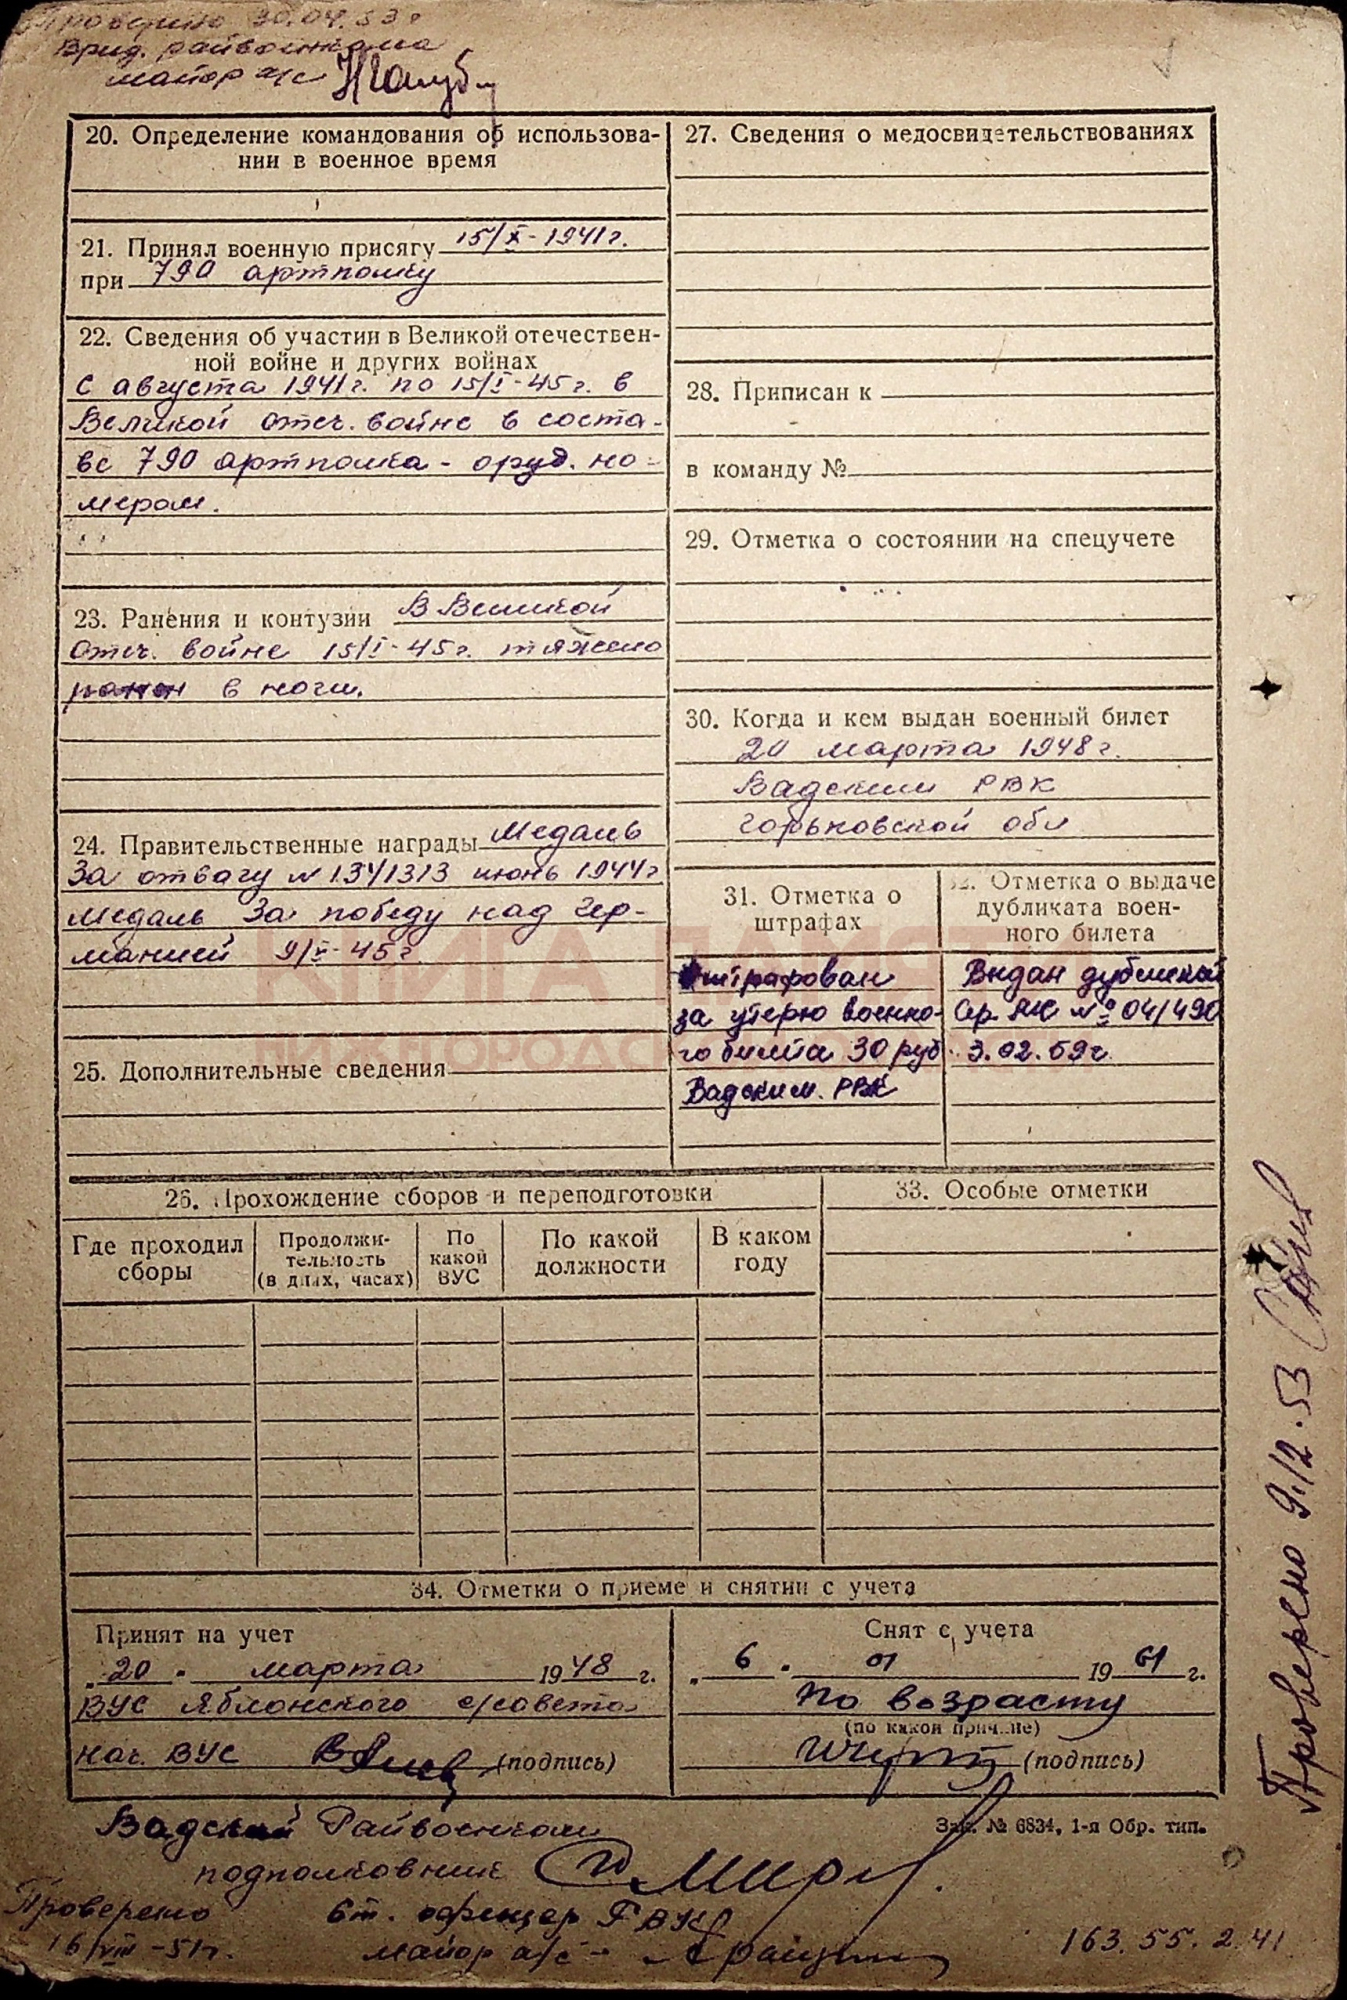 Проверено 30.04.53 г
Врид. райвоенкома
майор а/с
20. Определение командования об использова-
нии в военное время
21. Принял военную присягу 15/X-1941г.
при 790 артполку
22. Сведения об участии в Великой отечествен-
ной войне и других войнах
с августа 1941г. по 15/I-45г. в
Великой отеч. войне в соста-
ве 790 артполка - оруд. но-
мером.
23. Ранения и контузии В Великой
отеч. войне 15/I-45г. тяжело
ранен в ноги.
24. Правительственные награды Медаль
За отвагу № 1341313 июнь 1944г
медаль За победу над Гер-
манией 9/V-45г.
25. Дополнительные сведения
27. Сведения о медосвидетельствованиях
28. Приписан к
в команду №
29. Отметка о состоянии на спецучете
30. Когда и кем выдан военный билет
20 марта 1948г.
Вадским РВК
Горьковской обл
31. Отметка о
штрафах
штрафован
за утерю военно-
го билета 30 руб.
Вадским. РВК
32. Отметка о выдаче
дубликата воен-
ного билета
Выдан дубликат
Сер. № 04/490
3.02.59г.
КНИГА ПАМЯТИ
26. Прохождение сборов и переподготовки
Где проходил
сборы
Продолжи-
тельность
(в днях, часах)
По
какой
ВУС
По какой
должности
В каком
году
33. Особые отметки
34. Отметки о приеме и снятии с учета
Принят на учет
„20“ марта 1948 г.
ВУС Яблонского с/совета
нач. ВУС (подпись)
Снят с учета
„6“ 01 1961 г.
По возрасту
(по какой причине)
(подпись)
Вадский Райвоенком
подполковник
Зак. № 6834, 1-я Обр. тип.
Проверено
16/VIII-51г.
ст. офицер РВК
майор а/с -
163.55.2.41
Проверено 9.12.53